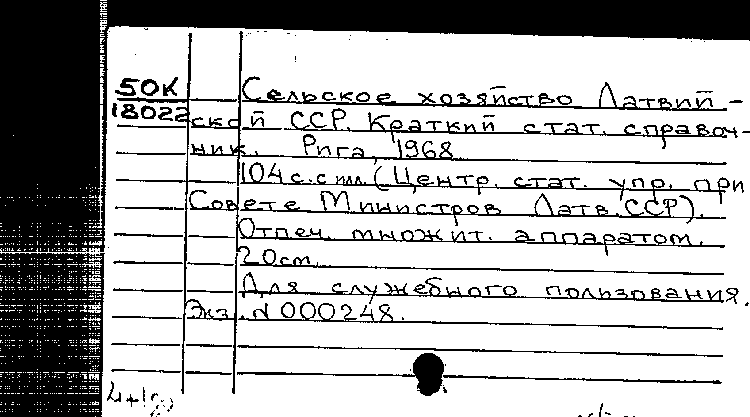 50К Сельское хозяйство Латвий-
18022 ской ССР. Краткий стат. справоч-
ник. Рига, 1968
104 с. с илл. (Центр. стат. упр. при
Совете Министров Латв. ССР).
Отпеч. множит. аппаратом.
20 см.
Для служебного пользования.
Экз. N 000248.